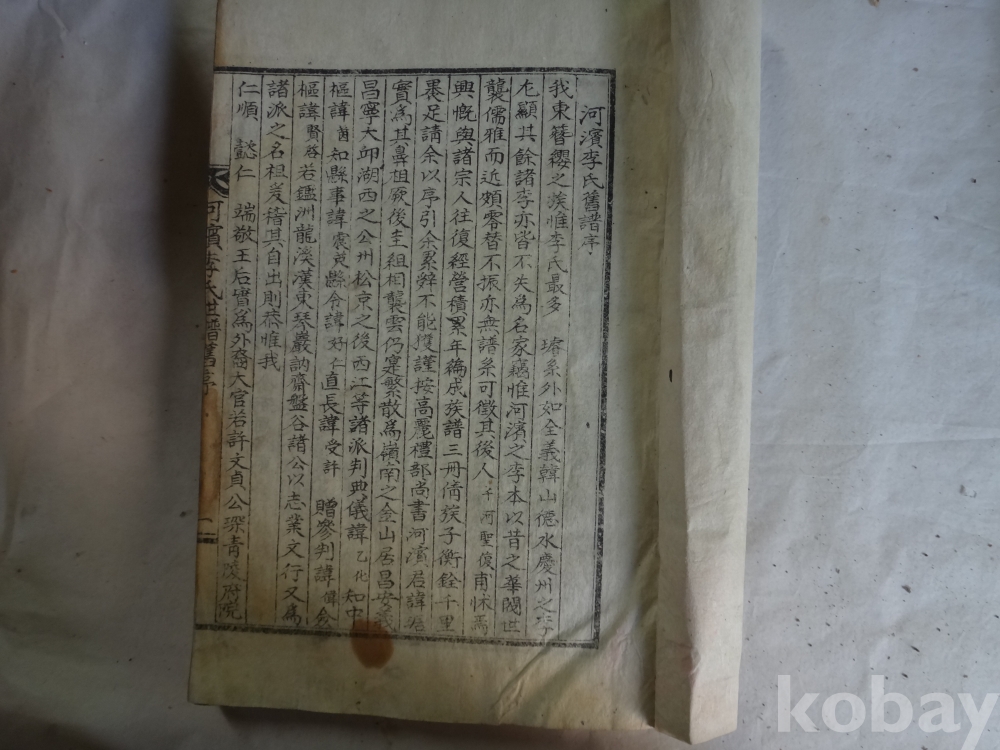 河濱李氏舊譜序
我東簪纓之族惟李氏最多 璿系外如全義韓山德水慶州之李
尤顯其餘諸李亦皆不失爲名家竊惟河濱之李本以昔之華閥世
襲儒雅而近頗零替不振亦無譜系可徵其後人千河聖復甫怵焉
興慨與諸宗人往復經營積累年編成族譜三冊倩族子衡銓千里
裹足請余以序引余累辭不能獲謹按高麗禮部尚書河濱君諱
實爲其鼻祖厥後圭組相襲雲仍寔繁散爲嶺南之金山居昌安義
昌寧大邱湖西之公州松京之後西江等諸派判典儀諱乙化知中
樞諱茵知縣事諱震東縣令諱好仁直長諱受許 贈參判諱偉僉
樞諱賢啓若鑑洲龍溪漢東琴巖訥齋盤谷諸公以志業文行又爲
諸派之名祖爰稽其自出則恭惟我
仁順 懿仁 端敬王后實爲外裔大官若許文貞公琛靑陵府院
河濱李氏世譜舊序
一
kobay